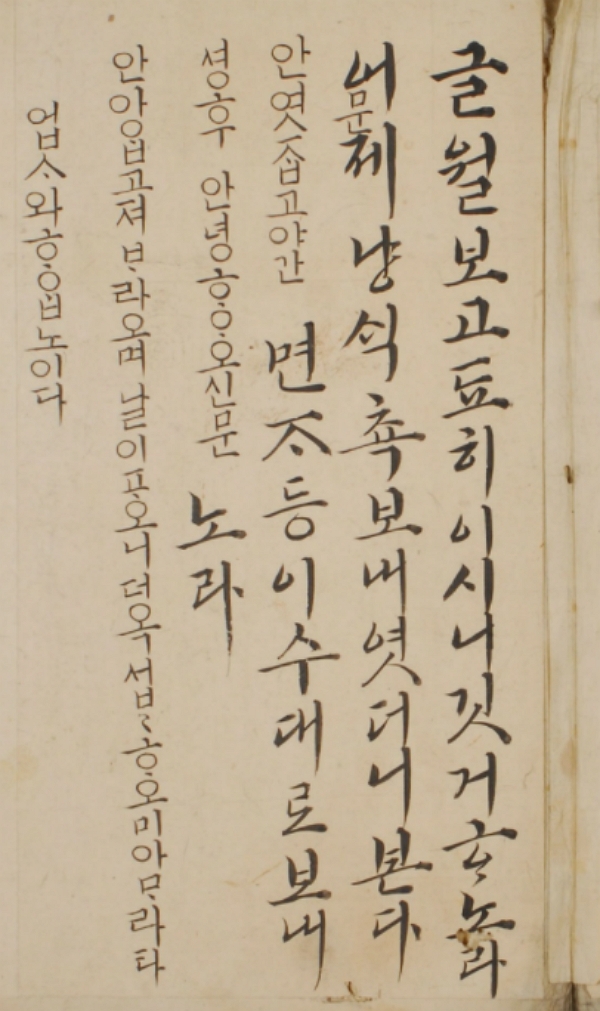 글월보고됴히이시니깃거ᄒᆞ노라
어제냥식쵹보내엿더니본다
문
안엿ᄌᆞᆸ고야간 면ᄌᆞ등이수대로보내
셩후 안녕ᄒᆞᄋᆞ오신문 노라
안아ᄋᆞᆸ고져ᄇᆞ라오며날이포오니더옥섭〻ᄒᆞ오미아ᄆᆞ라타
업ᄉᆞ와ᄒᆞᄋᆞᆸ노이다